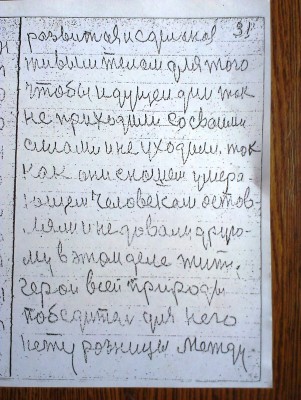 31
развитая и с диском
живым телом для того
чтобы идущем дни так
не приходили со своими
силами и не уходили, так
как они с нашем умера
ющем человекам остав-
ляли и не довали друго-
му в этом деле жить,
герой всей природы
победител для него
нету розницы между